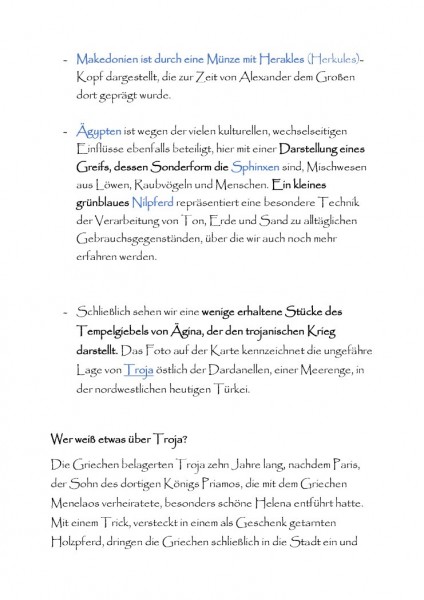 - Makedonien ist durch eine Münze mit Herakles (Herkules)-
Kopf dargestellt, die zur Zeit von Alexander dem Großen
dort geprägt wurde.
- Ägypten ist wegen der vielen kulturellen, wechselseitigen
Einflüsse ebenfalls beteiligt, hier mit einer Darstellung eines
Greifs, dessen Sonderform die Sphinxen sind, Mischwesen
aus Löwen, Raubvögeln und Menschen. Ein kleines
grünblaues Nilpferd repräsentiert eine besondere Technik
der Verarbeitung von Ton, Erde und Sand zu alltäglichen
Gebrauchsgegenständen, über die wir auch noch mehr
erfahren werden.
- Schließlich sehen wir eine wenige erhaltene Stücke des
Tempelgiebels von Ägina, der den trojanischen Krieg
darstellt. Das Foto auf der Karte kennzeichnet die ungefähre
Lage von Troja östlich der Dardanellen, einer Meerenge, in
der nordwestlichen heutigen Türkei.
Wer weiß etwas über Troja?
Die Griechen belagerten Troja zehn Jahre lang, nachdem Paris,
der Sohn des dortigen Königs Priamos, die mit dem Griechen
Menelaos verheiratete, besonders schöne Helena entführt hatte.
Mit einem Trick, versteckt in einem als Geschenk getarnten
Holzpferd, dringen die Griechen schließlich in die Stadt ein und